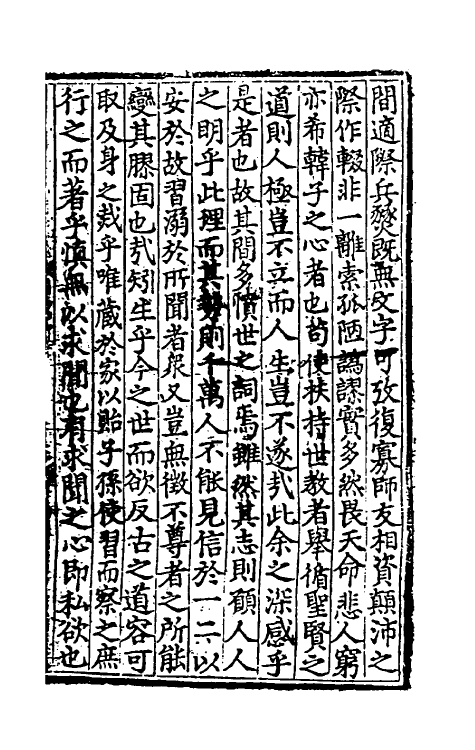 間適際兵燹既無文字可攷復寡師友相資顛沛之
際作輟非一離索孤陋譌謬實多然畏天命悲人窮
亦希韓子之心者也茍使扶持世教者舉循聖賢之
道則人極豈不立而人生豈不遂㢤此余之深感乎
是者也故其間多憤世之詞焉雖然其志則願人人
之明乎此理而其勢則千萬人不能見信於一二以
安於故習溺於所聞者衆又豈無徵不尊者之所能
變其膠固也㢤矧生乎今之世而欲反古之道容可
取及身之烖乎唯藏於家以貽子孫使習而察之庶
行之而著乎慎無以求聞也有求聞之心即私欲也